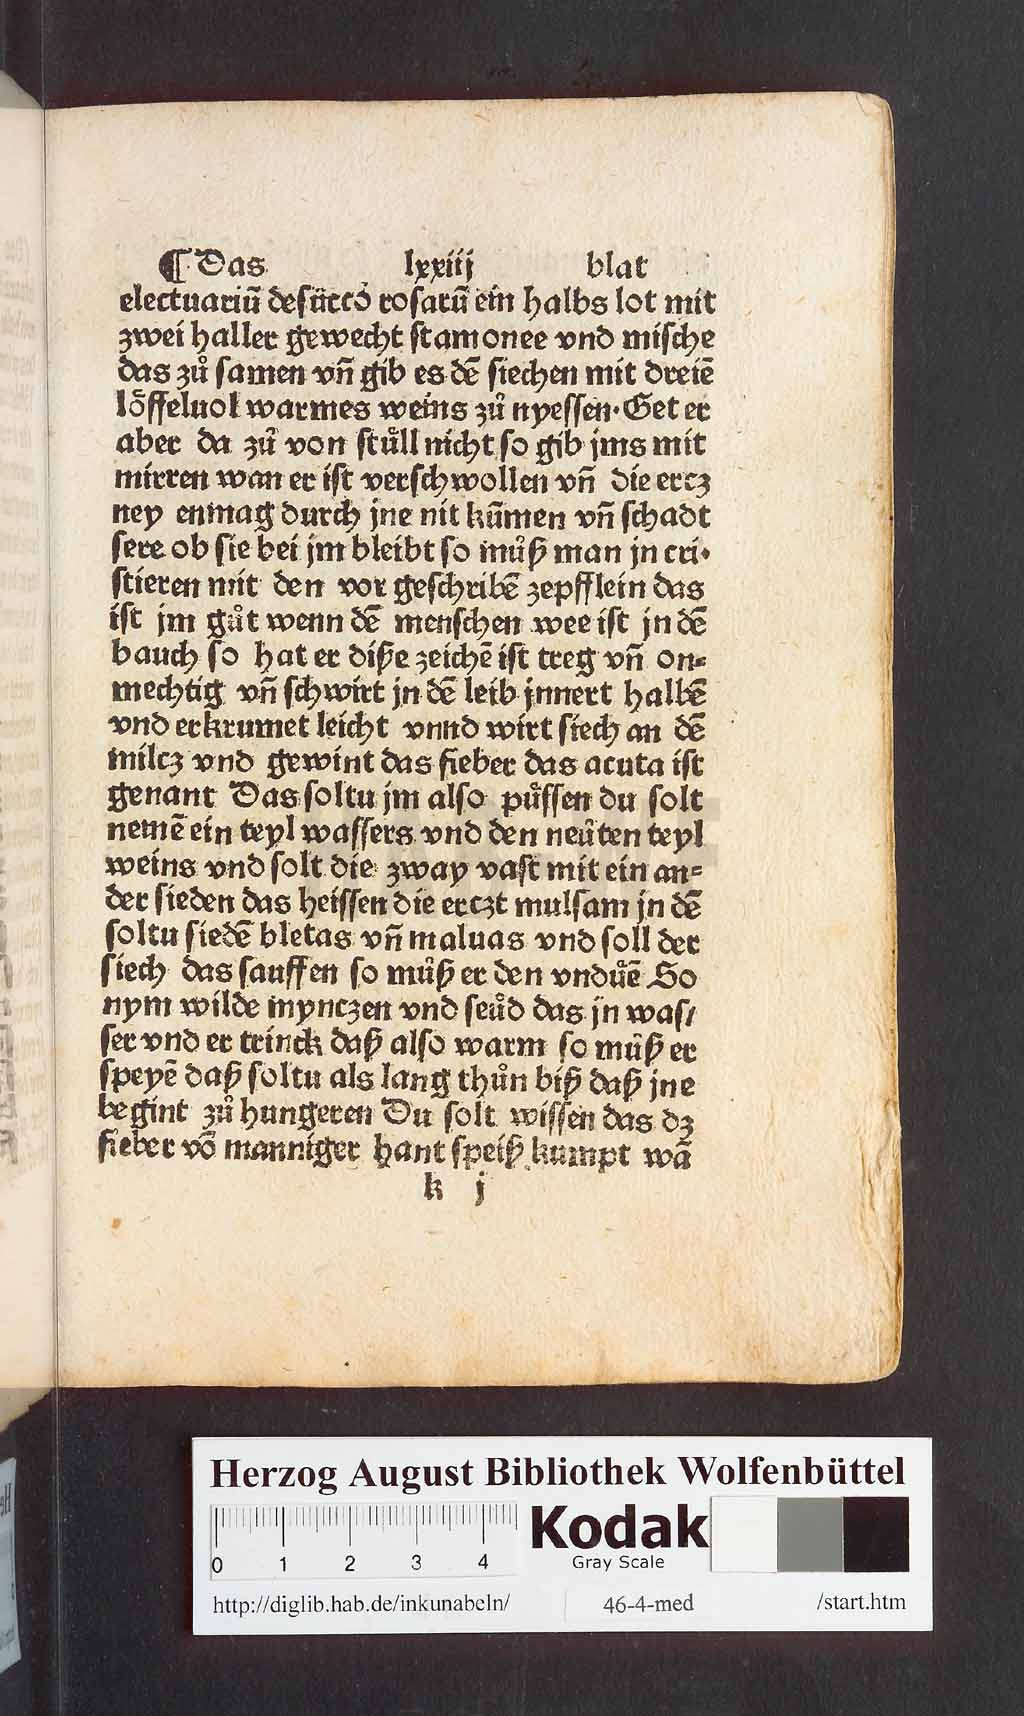 ¶ Das lxxiij blat
electuariū desuccó rosarū ein halbs lot mit
zwei haller gewecht stamonee vnd mische
das zů samen vn̄ gib es dē siechen mit dreiē
löffeluol warmes weins zů nyessen· Get er
aber da zů von stůll nicht so gib jms mit
mirren wan er ist verschwollen vn̄ die ercz
ney enmag durch jne nit kūmen vn̄ schadt
sere ob sie bei jm bleibt so můß man jn cri·
stieren mit den vor geschribē zepfflein das
ist jm gůt wenn dē menschen wee ist jn dē
bauch so hat er diße zeichē ist treg vn̄ on⸗
mechtig vn̄ schwirt jn dē leib jnnert halbē
vnd erkrumet leicht vnnd wirt siech an dē
milcz vnd gewint das fieber das acuta ist
genant Das soltu jm also půssen du solt
nemē ein teyl wassers vnd den neůten teyl
weins vnd solt die zway vast mit ein an⸗
der sieden das heissen die erczt mulsam jn dē
soltu siedē bletas vn̄ maluas vnd soll der
siech das sauffen so můß er den vndůē So
nym wilde mynczen vnd seůd das jn was/
ser vnd er trinck daß also warm so můß er
speyē daß soltu als lang thůn biß daß jne
begint zů hungeren Du solt wissen das dz
fieber vō manniger hant speiß kumpt wā
k j
Herzog August Bibliothek Wolfenbüttel
0 1 2 3 4
Kodak
Gray Scale
http://diglib.hab.de/inkunabeln/ 46-4-med /start.htm